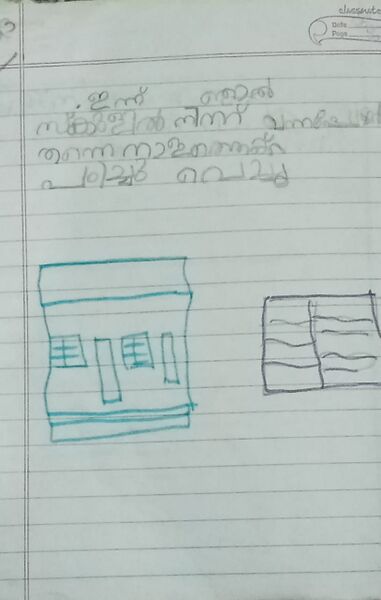 classmate
Date
Page
ഇന്ന് ഞാൻ
സ്കൂളിൽ നിന്ന് വന്നപ്പോൾ
തന്നെ നാളത്തെക്ക്
പഠിച്ചു വെച്ചു